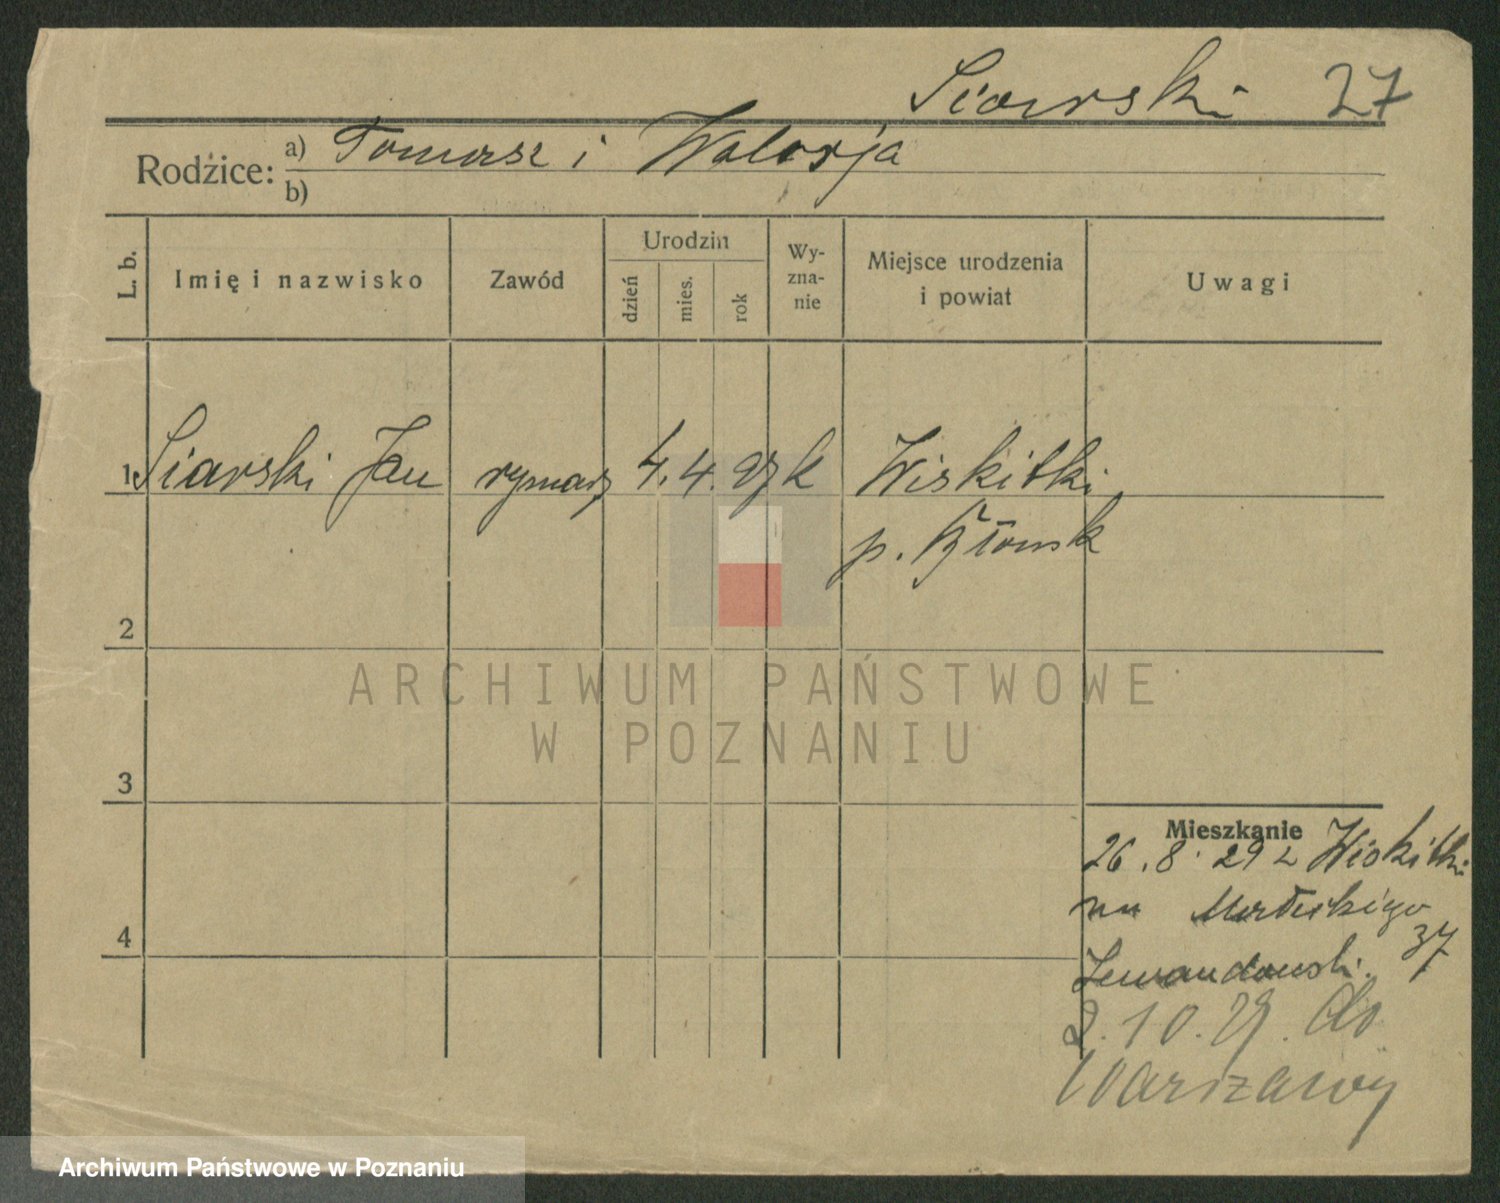 Siarski 27
Rodzice: a) Tomasz i Walerja
b)
L. b.
Imię i nazwisko
Zawód
Urodzin
dzień
mies.
rok
Wy-
zna-
nie
Miejsce urodzenia
i powiat
Uwagi
1 Siarski Jan rymarz 4. 4. 07 k Wiskitki
p. Błonsk
2
3
4
Mieszkanie
26.8.29 z Wiskitki
37
Lewandowski.
2.10.29. do
Warszawy
ARCHIWUM PAŃSTWOWE
W POZNANIU
Archiwum Państwowe w Poznaniu